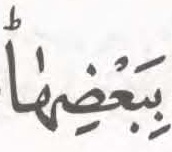 بِبَعْضِهَاؕ